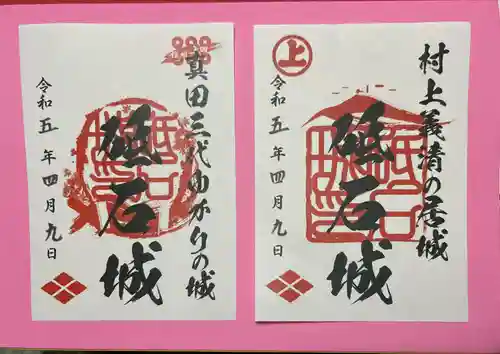 村上義清の居城
砥石城
令和五年四月九日
上
真田三代ゆかりの城
砥石城
令和五年四月九日